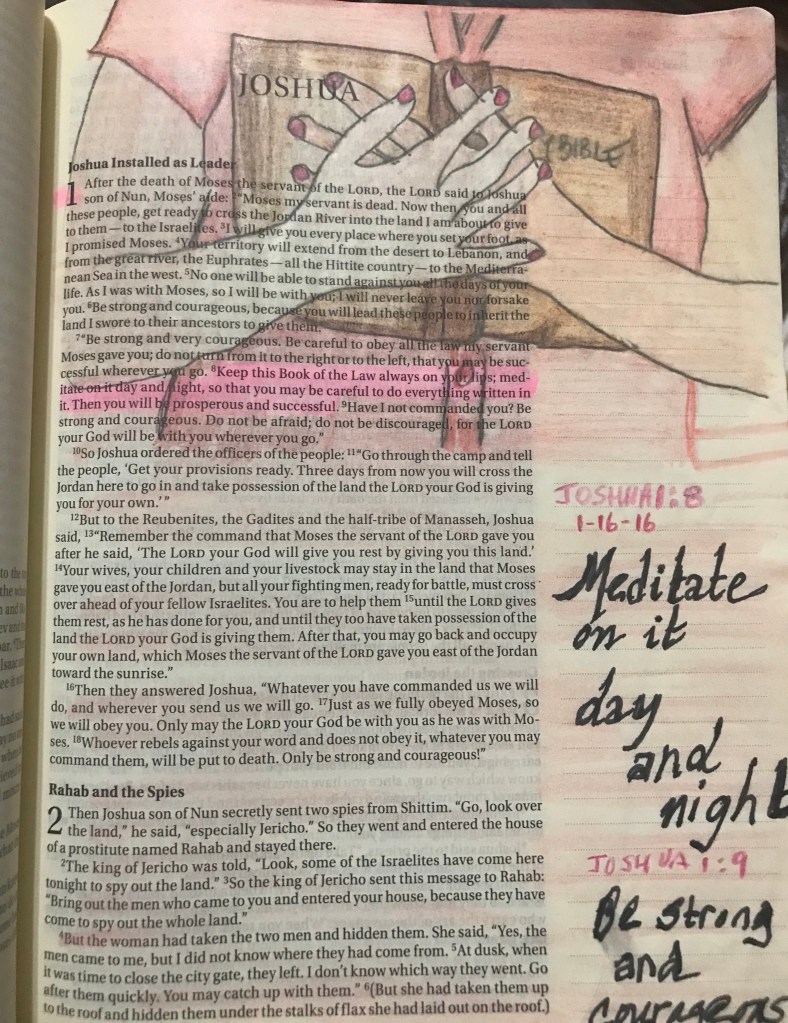 JOSHUA
BIBLE
Joshua Installed as Leader
1 After the death of Moses the servant of the LORD, the LORD said to Joshua
son of Nun, Moses' aide: 2"Moses my servant is dead. Now then, you and all
these people, get ready to cross the Jordan River into the land I am about to give
to them—to the Israelites. 3I will give you every place where you set your foot, as
I promised Moses. 4Your territory will extend from the desert to Lebanon, and
from the great river, the Euphrates—all the Hittite country—to the Mediterra-
nean Sea in the west. 5No one will be able to stand against you all the days of your
life. As I was with Moses, so I will be with you; I will never leave you nor forsake
you. 6Be strong and courageous, because you will lead these people to inherit the
land I swore to their ancestors to give them.
7"Be strong and very courageous. Be careful to obey all the law my servant
Moses gave you; do not turn from it to the right or to the left, that you may be suc-
cessful wherever you go. 8Keep this Book of the Law always on your lips; med-
itate on it day and night, so that you may be careful to do everything written in
it. Then you will be prosperous and successful. 9Have I not commanded you? Be
strong and courageous. Do not be afraid; do not be discouraged, for the LORD
your God will be with you wherever you go."
10So Joshua ordered the officers of the people: 11"Go through the camp and tell
the people, 'Get your provisions ready. Three days from now you will cross the
Jordan here to go in and take possession of the land the LORD your God is giving
you for your own.'"
12But to the Reubenites, the Gadites and the half-tribe of Manasseh, Joshua
said, 13"Remember the command that Moses the servant of the LORD gave you
after he said, 'The LORD your God will give you rest by giving you this land.'
14Your wives, your children and your livestock may stay in the land that Moses
gave you east of the Jordan, but all your fighting men, ready for battle, must cross
over ahead of your fellow Israelites. You are to help them 15until the LORD gives
them rest, as he has done for you, and until they too have taken possession of the
land the LORD your God is giving them. After that, you may go back and occupy
your own land, which Moses the servant of the LORD gave you east of the Jordan
toward the sunrise."
16Then they answered Joshua, "Whatever you have commanded us we will
do, and wherever you send us we will go. 17Just as we fully obeyed Moses, so
we will obey you. Only may the LORD your God be with you as he was with Mo-
ses. 18Whoever rebels against your word and does not obey it, whatever you may
command them, will be put to death. Only be strong and courageous!"
Rahab and the Spies
2 Then Joshua son of Nun secretly sent two spies from Shittim. "Go, look over
the land," he said, "especially Jericho." So they went and entered the house
of a prostitute named Rahab and stayed there.
2The king of Jericho was told, "Look, some of the Israelites have come here
tonight to spy out the land." 3So the king of Jericho sent this message to Rahab:
"Bring out the men who came to you and entered your house, because they have
come to spy out the whole land."
4But the woman had taken the two men and hidden them. She said, "Yes, the
men came to me, but I did not know where they had come from. 5At dusk, when
it was time to close the city gate, they left. I don't know which way they went. Go
after them quickly. You may catch up with them." 6(But she had taken them up
to the roof and hidden them under the stalks of flax she had laid out on the roof.)
JOSHUA 1:8
1-16-16
Meditate
on it
day
and
night
JOSHUA 1:9
Be strong
and
courageous